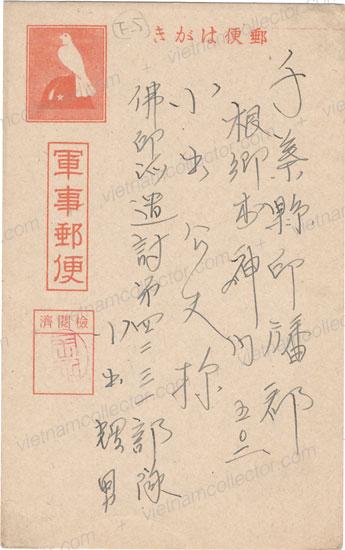 (F-5)
郵便はがき
千葉縣印旛郡
根郷村神門五〇二
小出公丈様
佛印派遣討第四二三三部隊
小出輝男
軍事郵便
檢閲濟
vietnamcollector.com